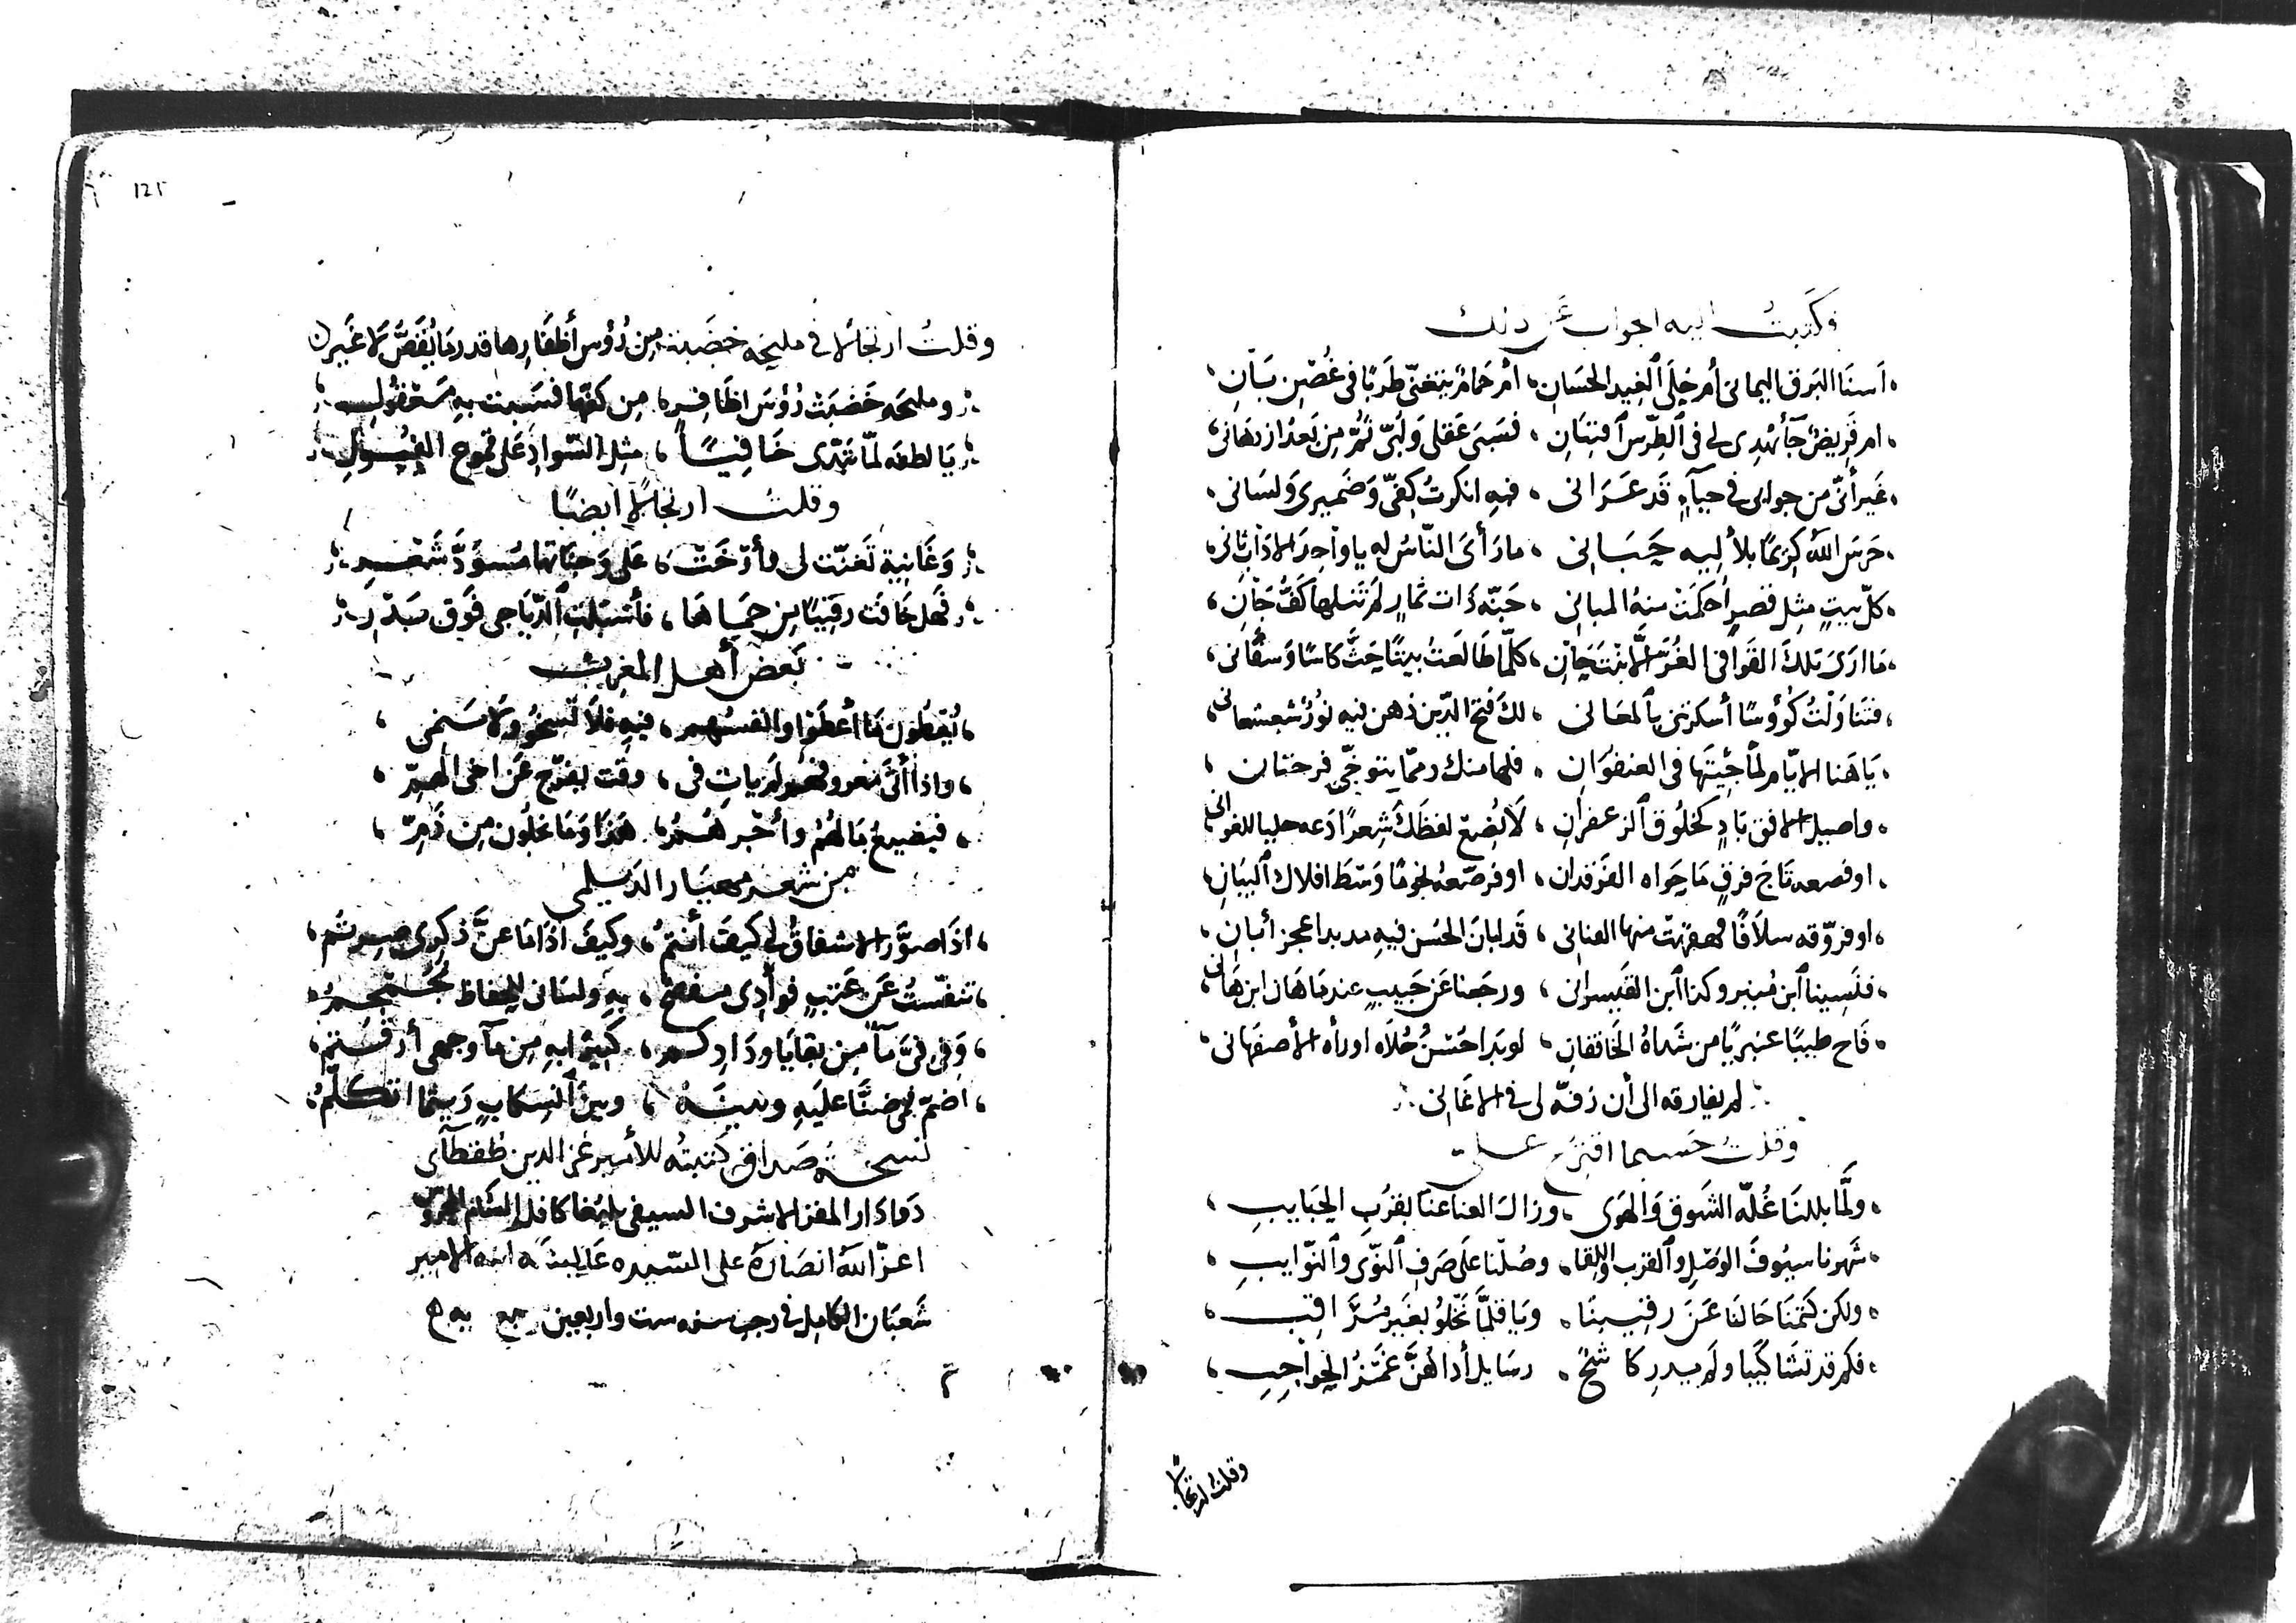 وكتبتُ إليه الجواب عن ذلك
أسنا البرق اليماني أم حلي الغيد الحسان، أم حمام يتغنّى طربًا في غصن بان
أم قريض جآ يُهدى لي في الطرس افتنان، فسبى عقلي ولبّي ثمّ من بعد ازدهاني
غير أنّي من جوابي في حيآءٍ قد عراني، فيه أنكرتُ كفّي وضميري ولساني
حرس الله كريمًا بلآليه حباني، ما رأى الناس له يا واحد الآداب ثاني
كلّ بيتٍ مثل قصرٍ أُحكمت منه المباني، جنّة ذات ثمارٍ لم تنلها كفّ جان
ما أرى تلك القوافي الغرّ إلا بنت حان، كلّما طالعت بيتًا حثّ كاسًا وسقاني
فتناولت كؤوسًا أسكرتني بالمعاني، لك فتح الدين ذهن فيه نورٌ شعشعاني
يا هنا الأيام لمّا جئتها في العنفوان، فلها منك ومما يتوخّى فرحتان
وأصيل الأفق بادٍ كخلوق الزعفران، لا يُضِع لفظك شعرًا دعه حليا للغواني
أو فصعه تاج فرقٍ ما حواه الفرقدان، أو فرصّعه نجومًا وسط أفلاك البيان
أو فروّقه سلافًا قهقهت منها القناني، قد أبان الحسن فيه مذ بدا عجز أبان
فنسينا ابن منير وكذا ابن القيسراني، ورجعنا عن حبيبٍ عندما هان ابن هاني
فاح طيبًا عنبريًا من شذاهُ الخافقان، لو بدا حسن حلاه أو رآه الأصفهاني
لم يفارقه إلى أن زفّه لي في الأغاني
وقلت حسبما اقترح علي
ولمّا بللنا غُلّة الشوق والهوى، وزال العنا عنا بقرب الحبايب
شهرنا سيوف الوصل والقرب واللقا، وصُلنا على صرف النوى والنوايب
ولكن كتمنا حالنا عن رقيبنا، ويا قلّما نخلو بغير مراقب
فكم قد تشاكينا ولم يدر كاشحٌ، رسايل أداهنّ غمز الحواجب
وقلت ارتجالًا
125
وقلت ارتجالًا في مليحه خضبت من رؤس أظفارها قدر ما يُقصّ لا غير
ومليحه خضبت رؤس اظافر، من كفها فسبت به معقولي
يا لطفه لمّا تبدّى خافيًا، مثل السواد على قموح الفول
وقلت ارتجالًا أيضًا
وغانية تغنّت لي فأرخت، على وجناتها مسودّ شعر
فهل خافت رقيبًا من حماها، فأسبلت الدياجي فوق بدر
بعض أهل المغرب
يُعطون ما أعطوا وأنفسهم، فيه فلا تسخو ولا تسمى
وإذا أتى معروفهم لم يأت في، وقت يفرّج عن أخي الهمّ
فيضيع مالهم وأجرهم، هذا وما يخلون من ذمّ
من شعر مهيار الديلمي
إذا صوّر الإشفاق لي كيف أنتم، وكيف إذا ما عنّ ذكري صرتم
تنفّستُ عن عتبٍ فوادي مفصح، به ولساني للحفاظ مجمجم
وفي فيّ مآء من بقايا ودادكم، كثيرًا به من مآ وجهي أرقتم
أضمّ فمي ضنًّا عليه وبينه، وبين انسكابٍ ريثما أتكلّم
نسخة صداق كتبته للأمير عز الدين طقطآى
دوادار المقر الأشرف السيفي يلبغا كافل الشام المحروس
أعزّ الله أنصاره على السيده عايشة ابنة الأمير
شعبان الكامل في رجب سنه ست واربعين وسبع مايه